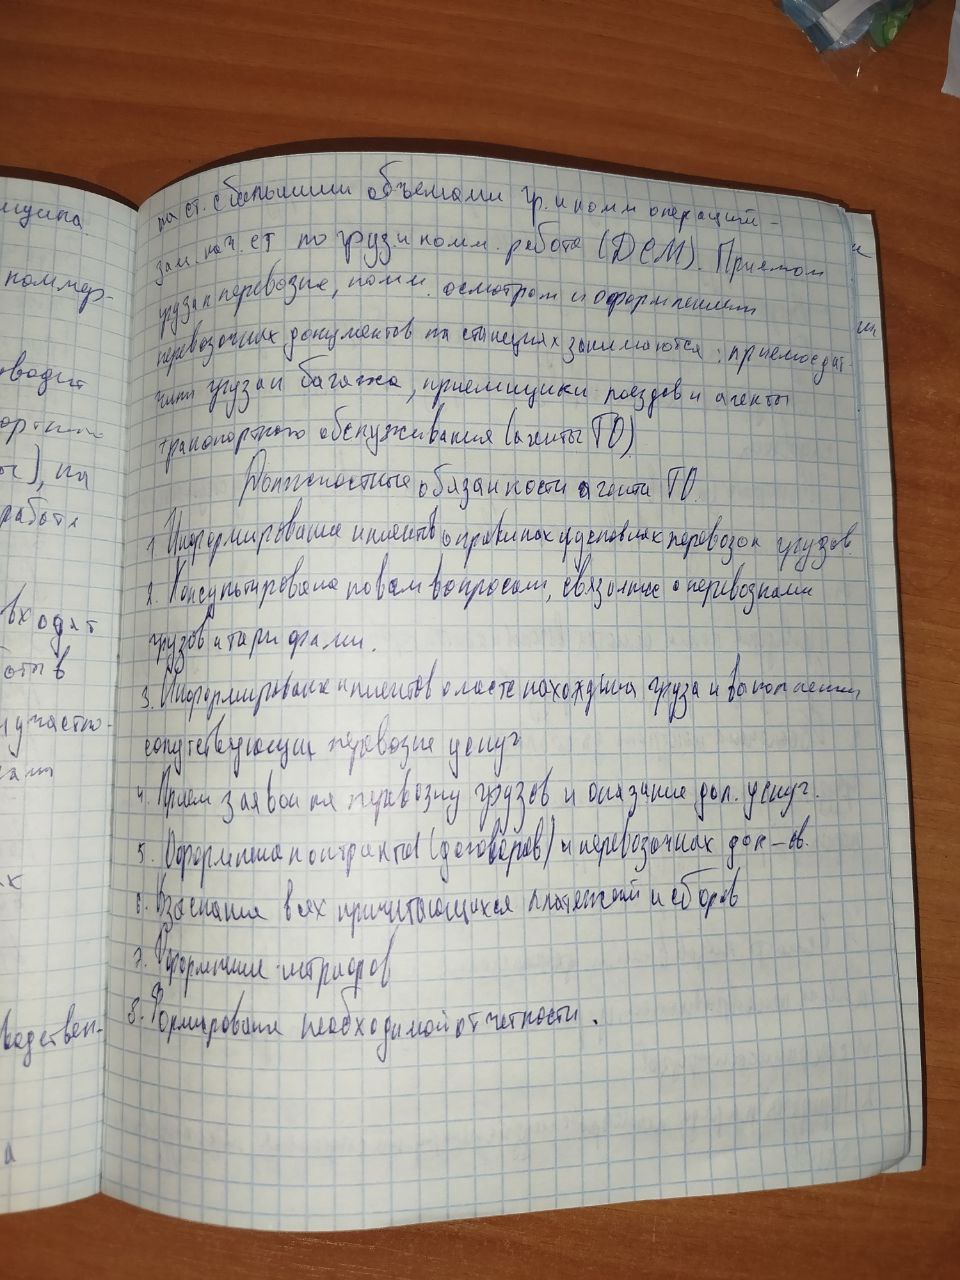 на ст. с большими объемами гр. и комм операций -
зам. нач. ст по груз и комм. работе (ДСМ). Приемом
груза к перевозке, комм. осмотром и оформлением
перевозочных документов на станциях занимаются: приемосдат-
чики груза и багажа, приемщики поездов и агенты
транспортного обслуживания (агенты ТО).
Должностные обязанности агента ТО.
1. Информирование клиентов о правилах и условиях перевозок грузов
2. Консультирование по всем вопросам, связанные с перевозками
грузов и тарифами.
3. Информирование клиентов о месте нахождения груза и выполнении
сопутствующих перевозке услуг
4. Прием заявок на перевозку грузов и оказание доп. услуг.
5. Оформление контрактов (договоров) и перевозочных док-ов.
6. Взыскание всех причитающихся платежей и сборов
7. Оформление штрафов
8. Формирование необходимой отчетности.
коммер-
оводит
на
работе
входят
оты в
и участко-
водствен-
а